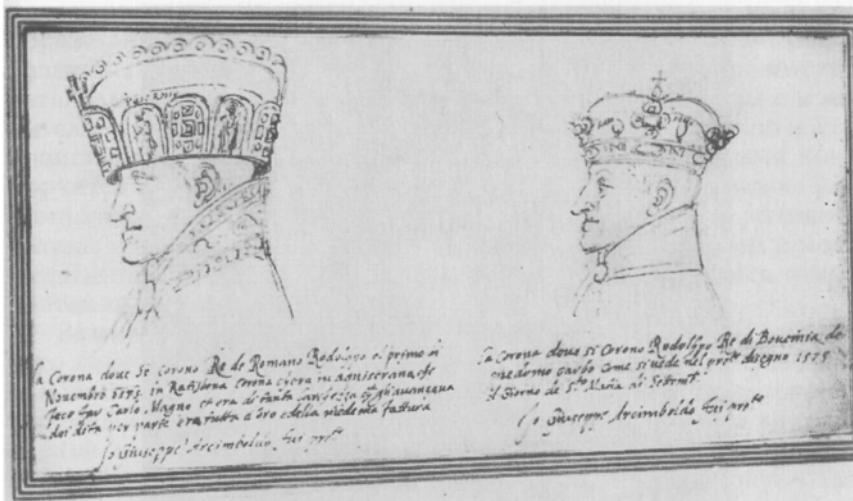 la Corona doue se corono Re de Romano Rodolfo el primo di
Nouembro 1575 in Ratisbona Corona ch'era in
Carlo Magno et era di tanta
dei dita per parte era tutta d oro e della medema fattura
Jo Giuseppe Arcimboldo fui pnte
la Corona doue si Corono Rodolfo Re di Bouemia de
medemo garbo come si uede nel pnte disegno 1575
il Giorno de Sta Maria di Settembre
Jo Giuseppe Arcimboldo fui pnte